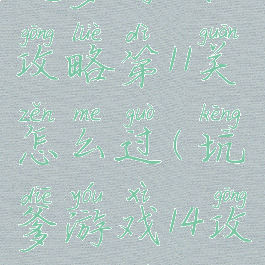 gōng lüè dì guān
攻略第11关
zěn me guò kēng
怎么过(坑
diē yóu xì gōng
爹游戏14攻